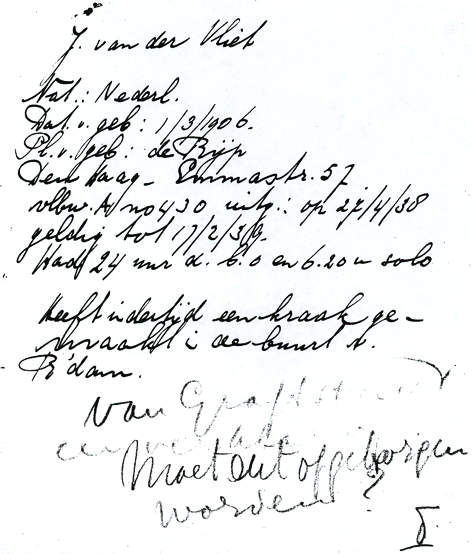 J. van der Vliet
Nat.: Nederl.
Dat. v. geb: 1/3/1906.
Pl. v. geb: de Rijp
Den Haag - Emmastr. 57
vlbw. A no 430 uitg.: op 27/4/38
geldig tot 17/2/39.
Had 24 uur d. b. o en 6.20 u solo
Heeft indertijd een kraak ge-
maakt i de buurt v.
R'dam.
van
Moet dit opgeborgen
worden?